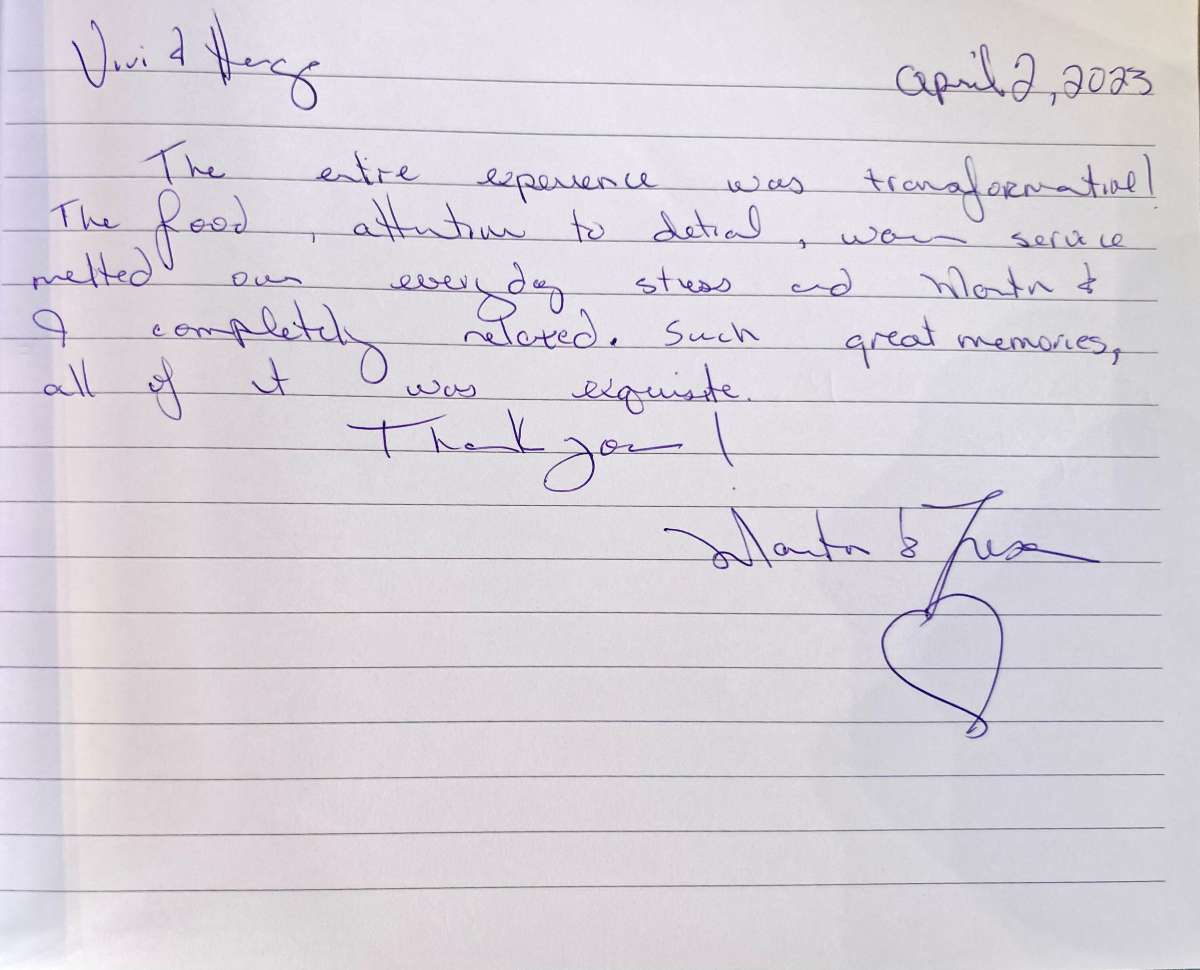 Vivi & April 2, 2023
The entire experience was transformative!
The food, attention to detial, warm service
melted our everyday stress and Martin &
I completely relaxed. Such great memories,
all of it was exquisite.
Thank you!
Martin &